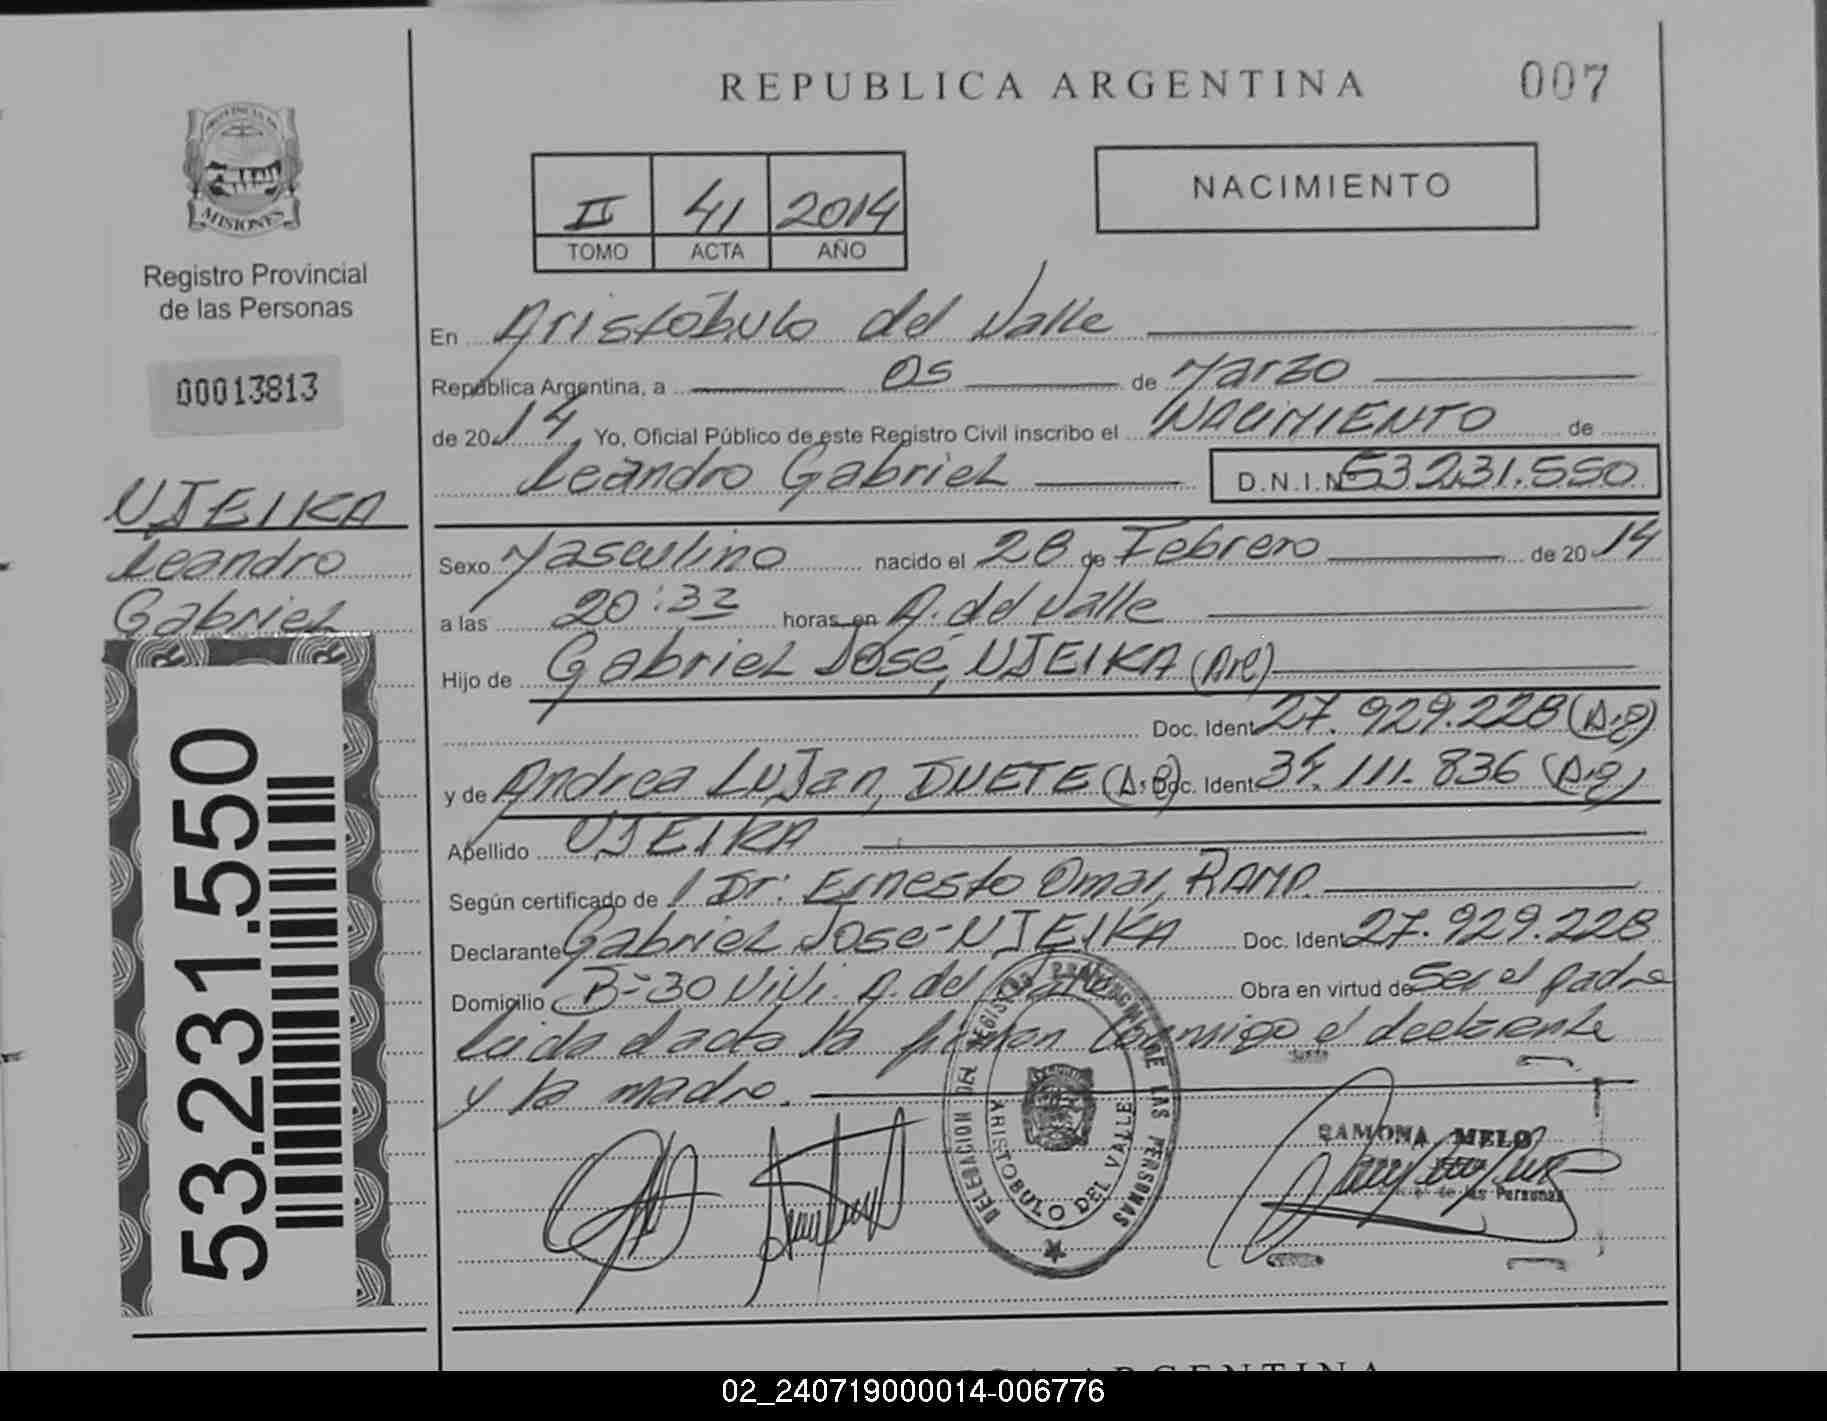 REPUBLICA ARGENTINA
007
PROVINCIA DE
MISIONES
Registro Provincial
de las Personas
00013813
II 41 2014
TOMO ACTA AÑO
NACIMIENTO
En Aristóbulo del Valle
República Argentina, a 05 de Marzo
de 2014, Yo, Oficial Público de este Registro Civil inscribo el NACIMIENTO de
Leandro Gabriel D.N.I.Nº 53.231.550
UJEIKA
Leandro
Gabriel
53.231.550
Sexo Masculino nacido el 28 de Febrero de 2014
a las 20:33 horas en A. del Valle
Hijo de Gabriel José, UJEIKA (Arg)
Doc. Ident 27.929.228 (Arg)
y de Andrea Lujan, DUETE (Arg) Doc. Ident 34.111.836 (Arg)
Apellido UJEIKA
Según certificado de / Dr: Ernesto Omar, RAMA.
Declarante Gabriel Jose-UJEIKA Doc. Ident 27.929.228
Domicilio B-30 Vivi. A. del Valle Obra en virtud de Ser el padre
Leida el acta la firman conmigo el declarante
y la madre.
DELEGACION DEL REGISTRO PROVINCIAL DE LAS PERSONAS
ARISTOBULO DEL VALLE
RAMONA MELO
de las Personas
REPUBLICA ARGENTINA
02_240719000014-006776